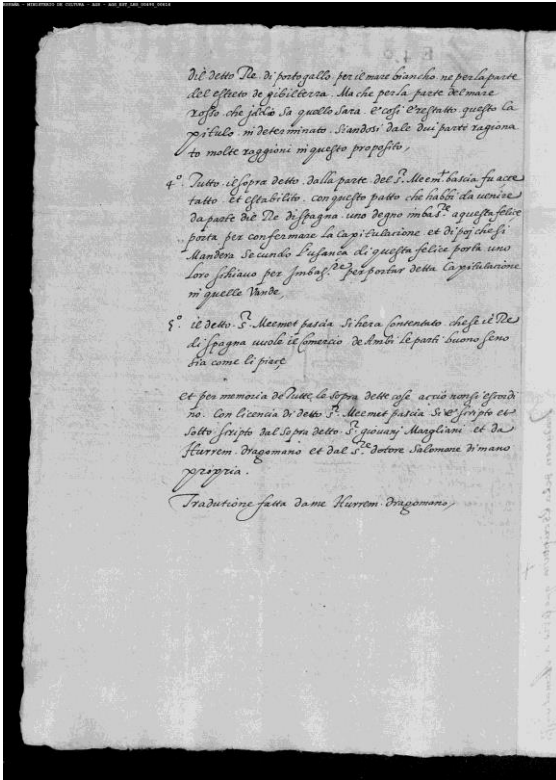 ESPAÑA - MINISTERIO DE CULTURA - AGS - AGS_EST_LEG_00490_00016
del detto Re di portogallo per il mare biancho ne per la parte
del estreto de gibilterra. Ma che per la parte del mare
rosso che iddio sa quello sara. e cosi e restatto questo ca
pitulo indeterminato siandosi dale dui parti ragiona
to molte raggioni in questo proposito,
4º. Tutto il sopra detto dalla parte del s.r Meem.t bascia fu acce
tatto et estabilito con questo patto che habbi da venire
da parte del Re di spagna uno degno imbas.re a questa felice
porta per confermare la capitulacione et di poi che si
Mandera secundo l'usanca di questa felice porta uno
loro schiavo per Imbas.re per portar detta capitulacione
in quelle Vande,
5º. il detto s.r Meemet pascia si hera contentato che se il Re
di spagna vuole il comercio de Ambi le parti buono se no
sia come li piace
et per memoria de Tutte le sopra dette cose accio non si escordi
no. Con licencia di detto s.r Meemet pascia si e scripto et
sotto scripto dal sopra detto s.r giovanj Margliani et da
Hurrem dragomano et dal s.re dotore Salomone di mano
propria.
Tradutione fatta da me Hurrem dragomano,